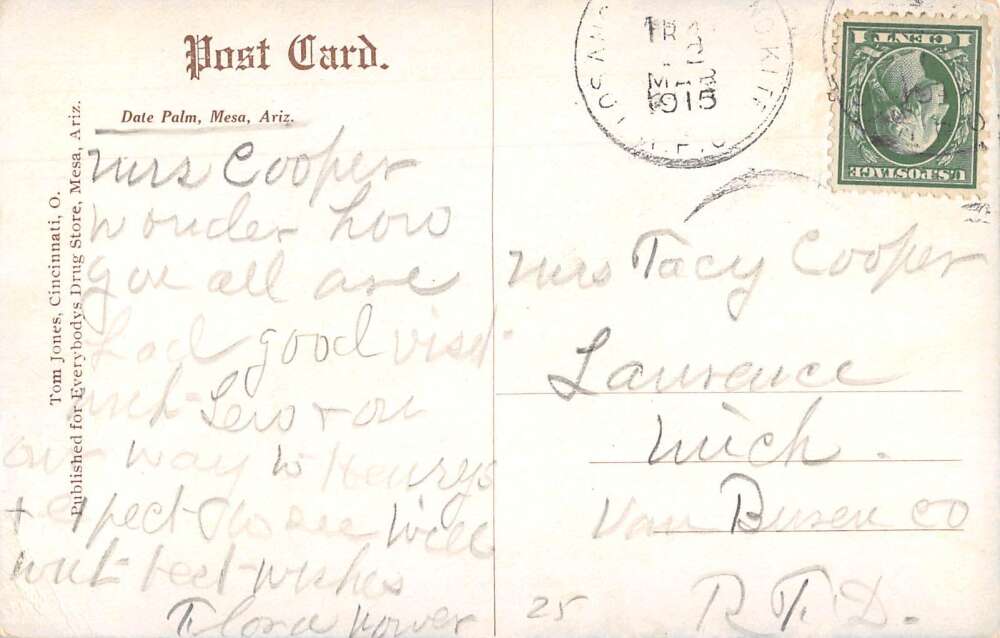 Post Card.
Date Palm, Mesa, Ariz.
Tom Jones, Cincinnati, O.
Published for Everybodys Drug Store, Mesa, Ariz.
Mrs Cooper
wonder how
you all are
had good visit
with Lew + on
our way to Henrys
+ expect to see Will
with best wishes
Flora
LOS ANG
TR
2
MAR
1915
R.P.O.
1 CENT 1
U.S. POSTAGE
Mrs Tacy Cooper
Lawrence
Mich.
Van Buren Co
25
R.F.D.